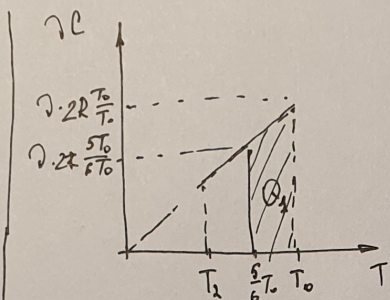 νC
ν·2R T₀/T₀
ν·2R 5T₀/6T₀
Q₁
T₂ 5/6 T₀ T₀ T